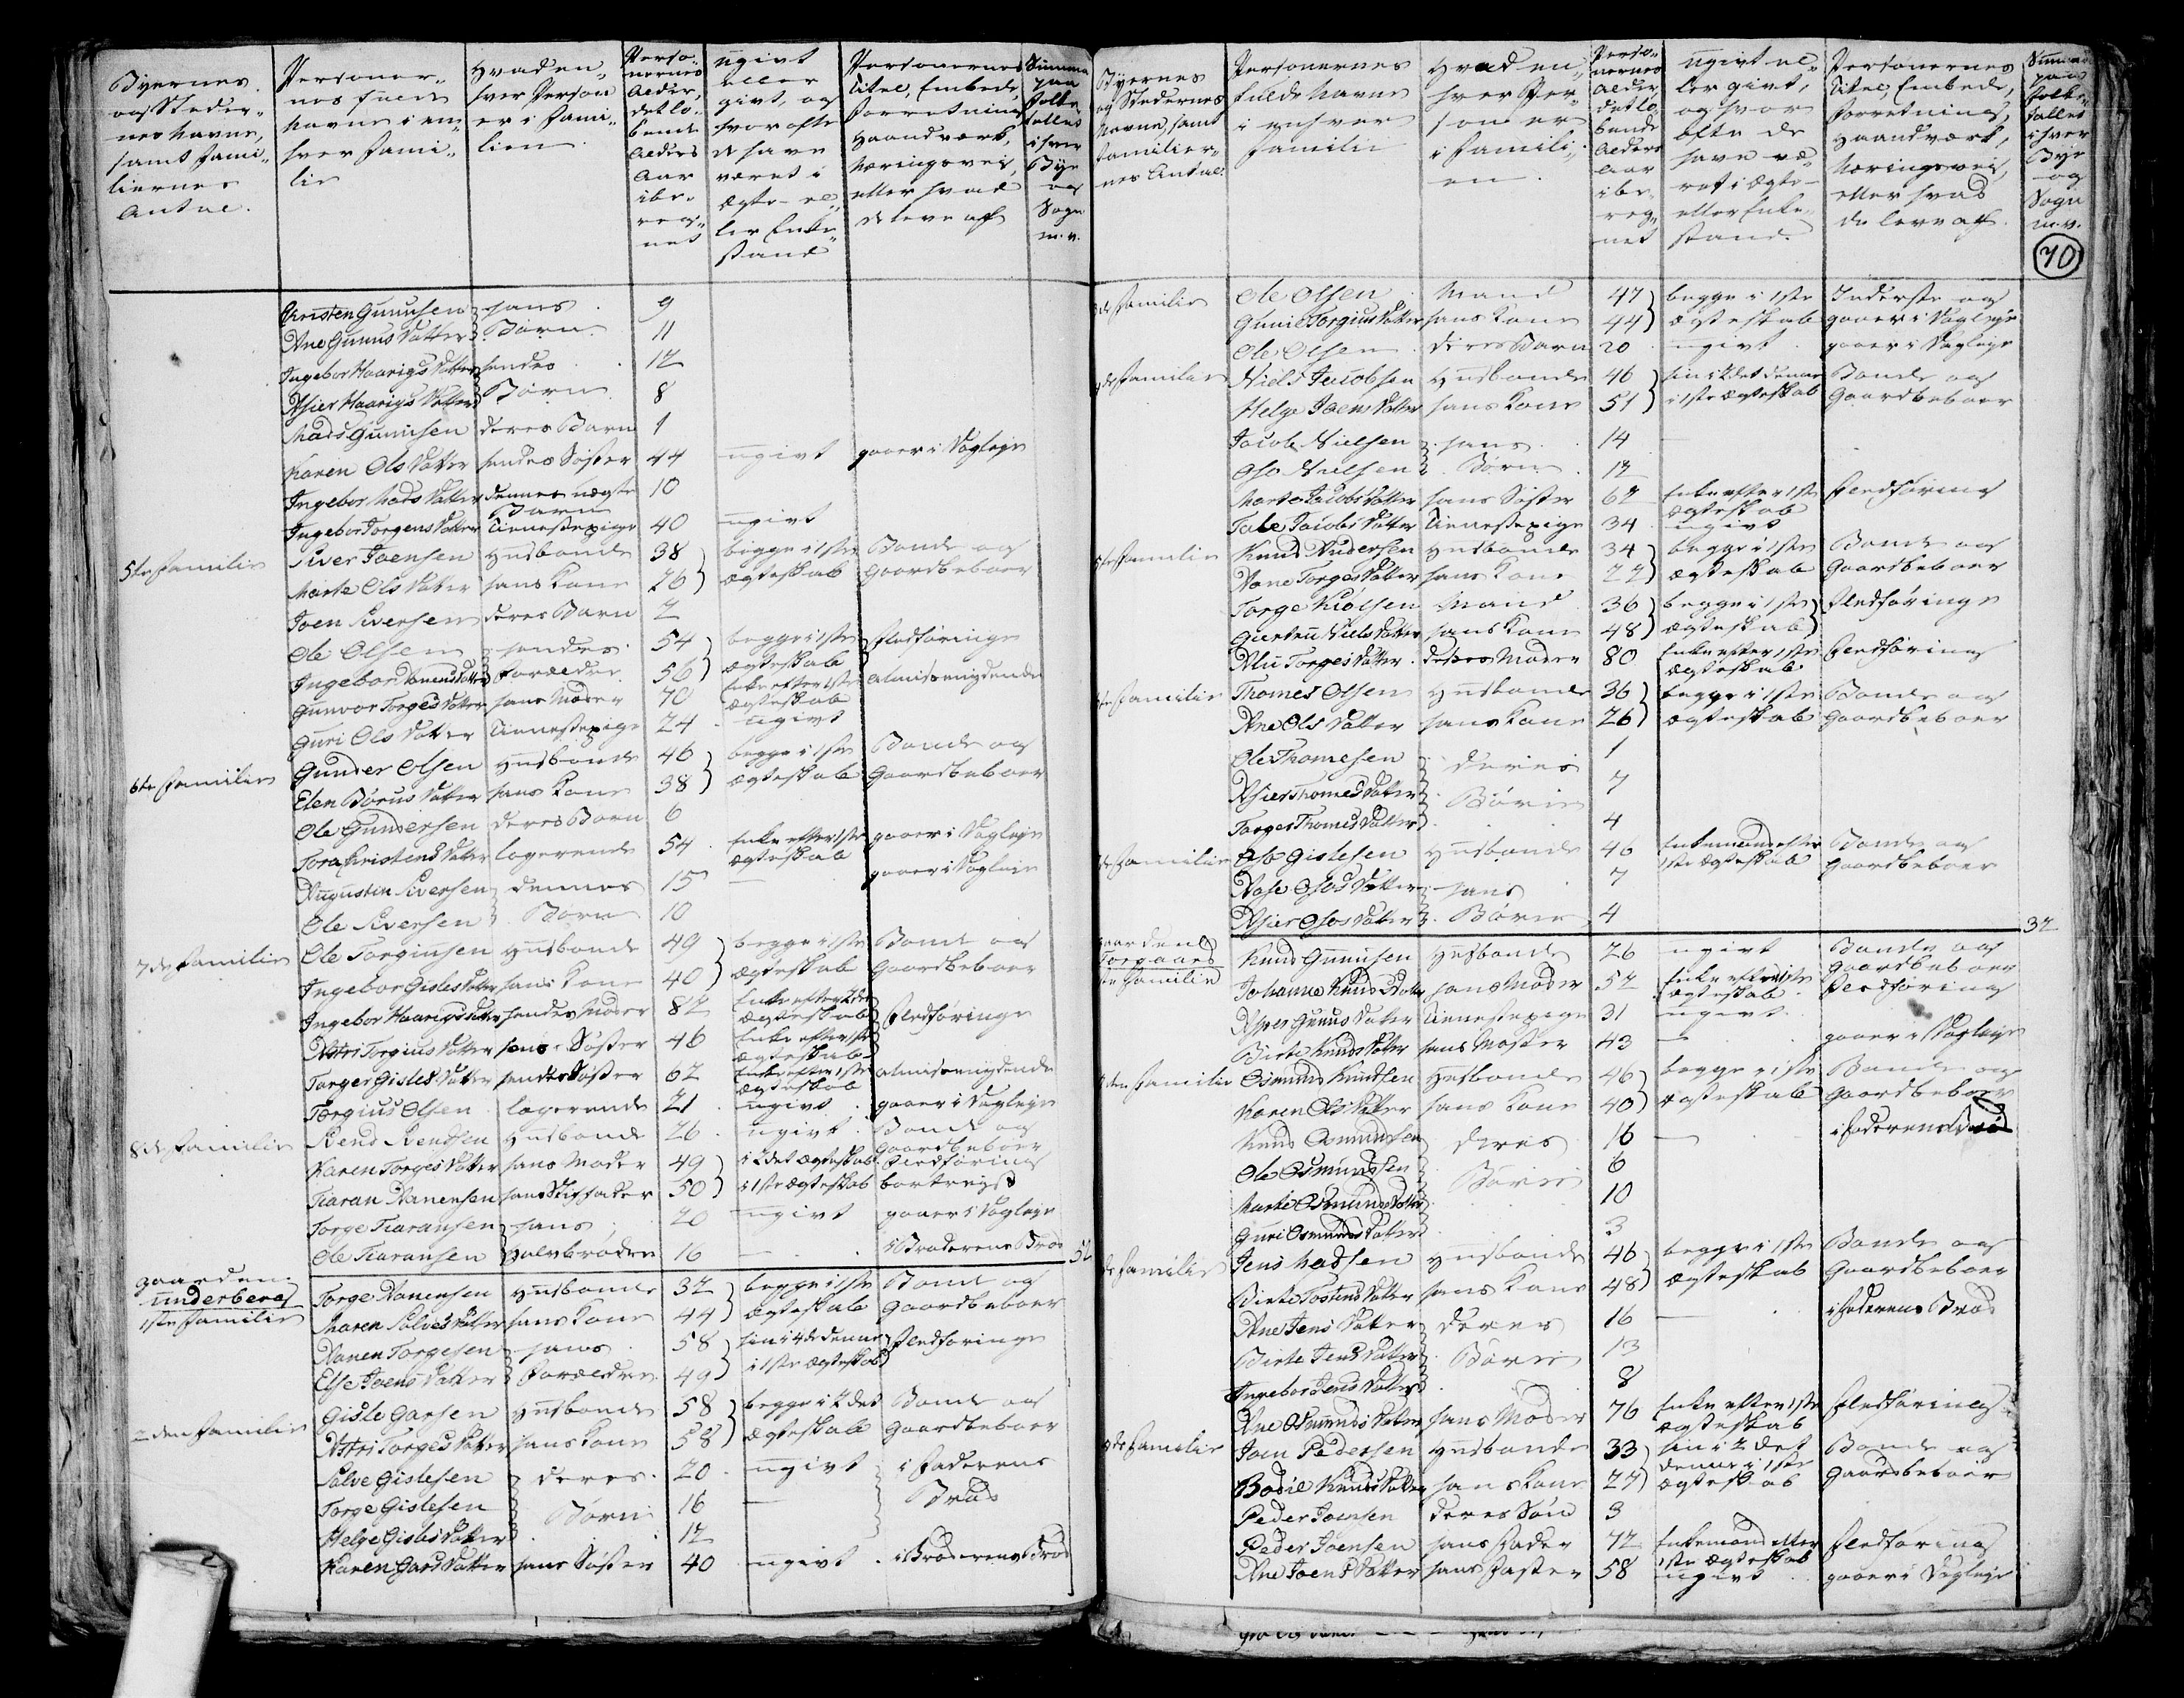 Byernes
og Steder-
nes Navne,
samt Fami-
liernes
Antal.
Personer-
nes fulde
Navne i en-
hver Fami-
lie
Hvad en-
hver Person
er i Fami-
lien.
Perso-
nernes
Alder,
det lø-
bende
Alders
Aar
ibe-
reg-
net
ugivt
eller
givt, og
hvor ofte
de have
været i
Ægte- el-
ler Enke-
stand
Personernes
Titel, Embede,
Forretning,
Haandværk,
Næringsvei,
eller hvad
de leve af
Summa
paa
Folke
tallet
i hver
Bye
og
Sogn
m.v.
Christen Gunusen hans 9
Ane Gunus Datter Børn 11
Ingebor Haarigs Datter hendes 12
Asier Haarigs Datter Børn 8
Mads Gunusen deres Barn 1
Karen Ols Datter hendes Søster 44 ugivt gaaer i Dagleje
Ingebor Mads Datter dennes uægte Barn 10
Ingebor Jorgens Datter Tieneste pige 40 ugivt
5te Familie Siver Joensen Husbonde 38 begge i 1ste Bonde og
Marte Ols Datter hans Kone 26 Ægteskab Gaardbeboer
Joen Siversen deres Barn 2
Ole Olsen hendes 54 begge i 1ste Fledføringe
Ingebor Datter Forældre 56 Ægteskab
Gunvor Torges Datter hans Moder 70 Enke efter 1ste Ægteskab almissenydende
Guri Ols Datter Tieneste pige 24 ugivt
6te Familie Gunder Olsen Husbonde 46 begge i 1ste Bonde og
Elen Børus Datter hans Kone 38 Ægteskab Gaardbeboer
Ole Gundersen deres Barn 6
Tora Christens Datter logerende 54 Enke efter 1ste Ægteskab gaaer i Dagleje
Augustin Siversen dennes 15 — gaaer i Dagleje
Ole Siversen Børn 10
7de Familie Ole Torgiusen Husbonde 49 begge i 1ste Bonde og
Ingebor Gisles Datter hans Kone 40 Ægteskab Gaardbeboer
Ingebor Haarigs Datter hendes Moder 82 Enke efter 2det Ægteskab Fledføringe
Astri Torgius Datter hans Søster 46 Enke efter 1ste Ægteskab
Torger Gisles Datter hendes Søster 62 Enke efter 1ste Ægteskab almissenydende
Torgius Olsen logerende 21 ugivt gaaer i Dagleje
8de Familie Svend Svendsen Husbonde 26 ugivt Bonde og Gaardbeboer
Karen Torges Datter hans Moder 49 i 2det Ægteskab Fledføring
Tiaran Nanensen hans Stiffader 50 i 1ste Ægteskab bortreyst
Torge Tiaransen hans 20 ugivt gaaer i Dagleje
Ole Tiaransen Halvbrødre 16 — i Broderens Brød
Gaarden
Underberg
1ste Familie Torge Nanensen Husbonde 32 begge i 1ste Bonde og
Maren Salves Datter hans Kone 44 Ægteskab Gaardbeboer
Nanen Torgesen hans 58 hun i 4de denne Fledføringe
Else Joens Datter Forældre 49 i 1ste Ægteskab
2den Familie Gisle Garsen Husbonde 58 begge i 2det Bonde og
Astri Torges Datter hans Kone 58 Ægteskab Gaardbeboer
Salve Gislesen deres 20 ugivt i Faderens
Torge Gislesen Børn 16 — Brød
Helge Gisles Datter 12
Karen Gars Datter hans Søster 40 ugivt i Broderens Brød
Byernes
og Stedernes
Navne, samt
Familier-
nes Antal.
Personernes
fulde Navne
i enhver
Familie
Hvad en-
hver Per-
son er
i Famili-
en.
Perso-
nernes
Alder,
det lø-
bende
Alders
Aar
ibe-
reg-
net
ugivt el-
ler givt,
og hvor
ofte de
have væ-
ret i Ægte-
eller Enke-
stand.
Personernes
Titel, Embede,
Forretning,
Haandværk,
Næringsvei,
eller hvad
de leve af.
Summa
paa
Folke-
tallet
i hver
Bye
og
Sogn
m.v.
70
Familie Ole Olsen Mand 47 begge i 1ste Inderste og
Gunil Torgius Datter hans Kone 44 Ægteskab gaaer i Dagleje
Ole Olsen deres Barn 20 ugivt gaaer i Dagleje
Familie Niels Jacobsen Husbonde 46 hun i 2det denne Bonde og
Helge Joens Datter hans Kone 51 i 1ste Ægteskab Gaardbeboer
Jacob Nielsen hans 14
Oso Nielsen Børn 12
Marte Jacobs Datter hans Søster 62 Enke efter 1ste Ægteskab Fledføring
Tale Jacobs Datter Tieneste pige 34 ugivt
5te Familie Knud Andersen Husbonde 34 begge i 1ste Bonde og
Nane Torges Datter hans Kone 27 Ægteskab Gaardbeboer
Torge Kiølsen Mand 36 begge i 1ste Fledføringe
Giertru Niels Datter hans Kone 48 Ægteskab
Alu Torges Datter deres Moder 80 Enke efter 1ste Ægteskab Fledføring
Familie Thomes Olsen Husbonde 36 begge i 1ste Bonde og
Ane Ols Datter hans Kone 26 Ægteskab Gaardbeboer
Ole Thomesen deres 1
Asier Thomes Datter Børn 7
Torger Thomes Datter 4
Familie Oso Gislesen Husbonde 46 Enkemand efter Bonde og
1ste Ægteskab Gaardbeboer
Aase Osos Datter hans 7
Asier Osos Datter Børn 4
32
Gaarden
Torgaard
Familie Knud Gunusen Husbonde 26 ugivt Bonde og Gaardbeboer
Johanne Knuds Datter hans Moder 52 Enke efter 1ste Ægteskab Fledføring
Gunus Datter Tieneste pige 31 ugivt
Birte Knuds Datter hans Moster 43 — gaaer i Dagleje
den Familie Osmund Knudsen Husbonde 46 begge i 1ste Bonde og
Karen Ols Datter hans Kone 40 Ægteskab Gaardbeboer
Knud Osmundsen deres 16 — i Faderens Brød
Ole Osmundsen Børn 6
Marte Osmunds Datter 10
Guri Osmunds Datter 3
de Familie Jens Madsen Husbonde 46 begge i 1ste Bonde og
Birte Tostens Datter hans Kone 48 Ægteskab Gaardbeboer
Ane Jens Datter deres 16 — i Faderens Brød
Birte Jens Datter Børn 13
Ingebor Jens Datter 8
Ane Osmunds Datter hans Moder 76 Enke efter 1ste Ægteskab Fledføring
de Familie Joen Pedersen Husbonde 33 hun i 2det Bonde og
Bodil Knuds Datter hans Kone 27 denne i 1ste Ægteskab Gaardbeboer
Peder Joensen deres Søn 3
Peder Joensen hans Fader 72 Enkemand efter 1ste Ægteskab Fledføring
Ane Joens Datter hans Faster 58 ugivt gaaer i Dagleje